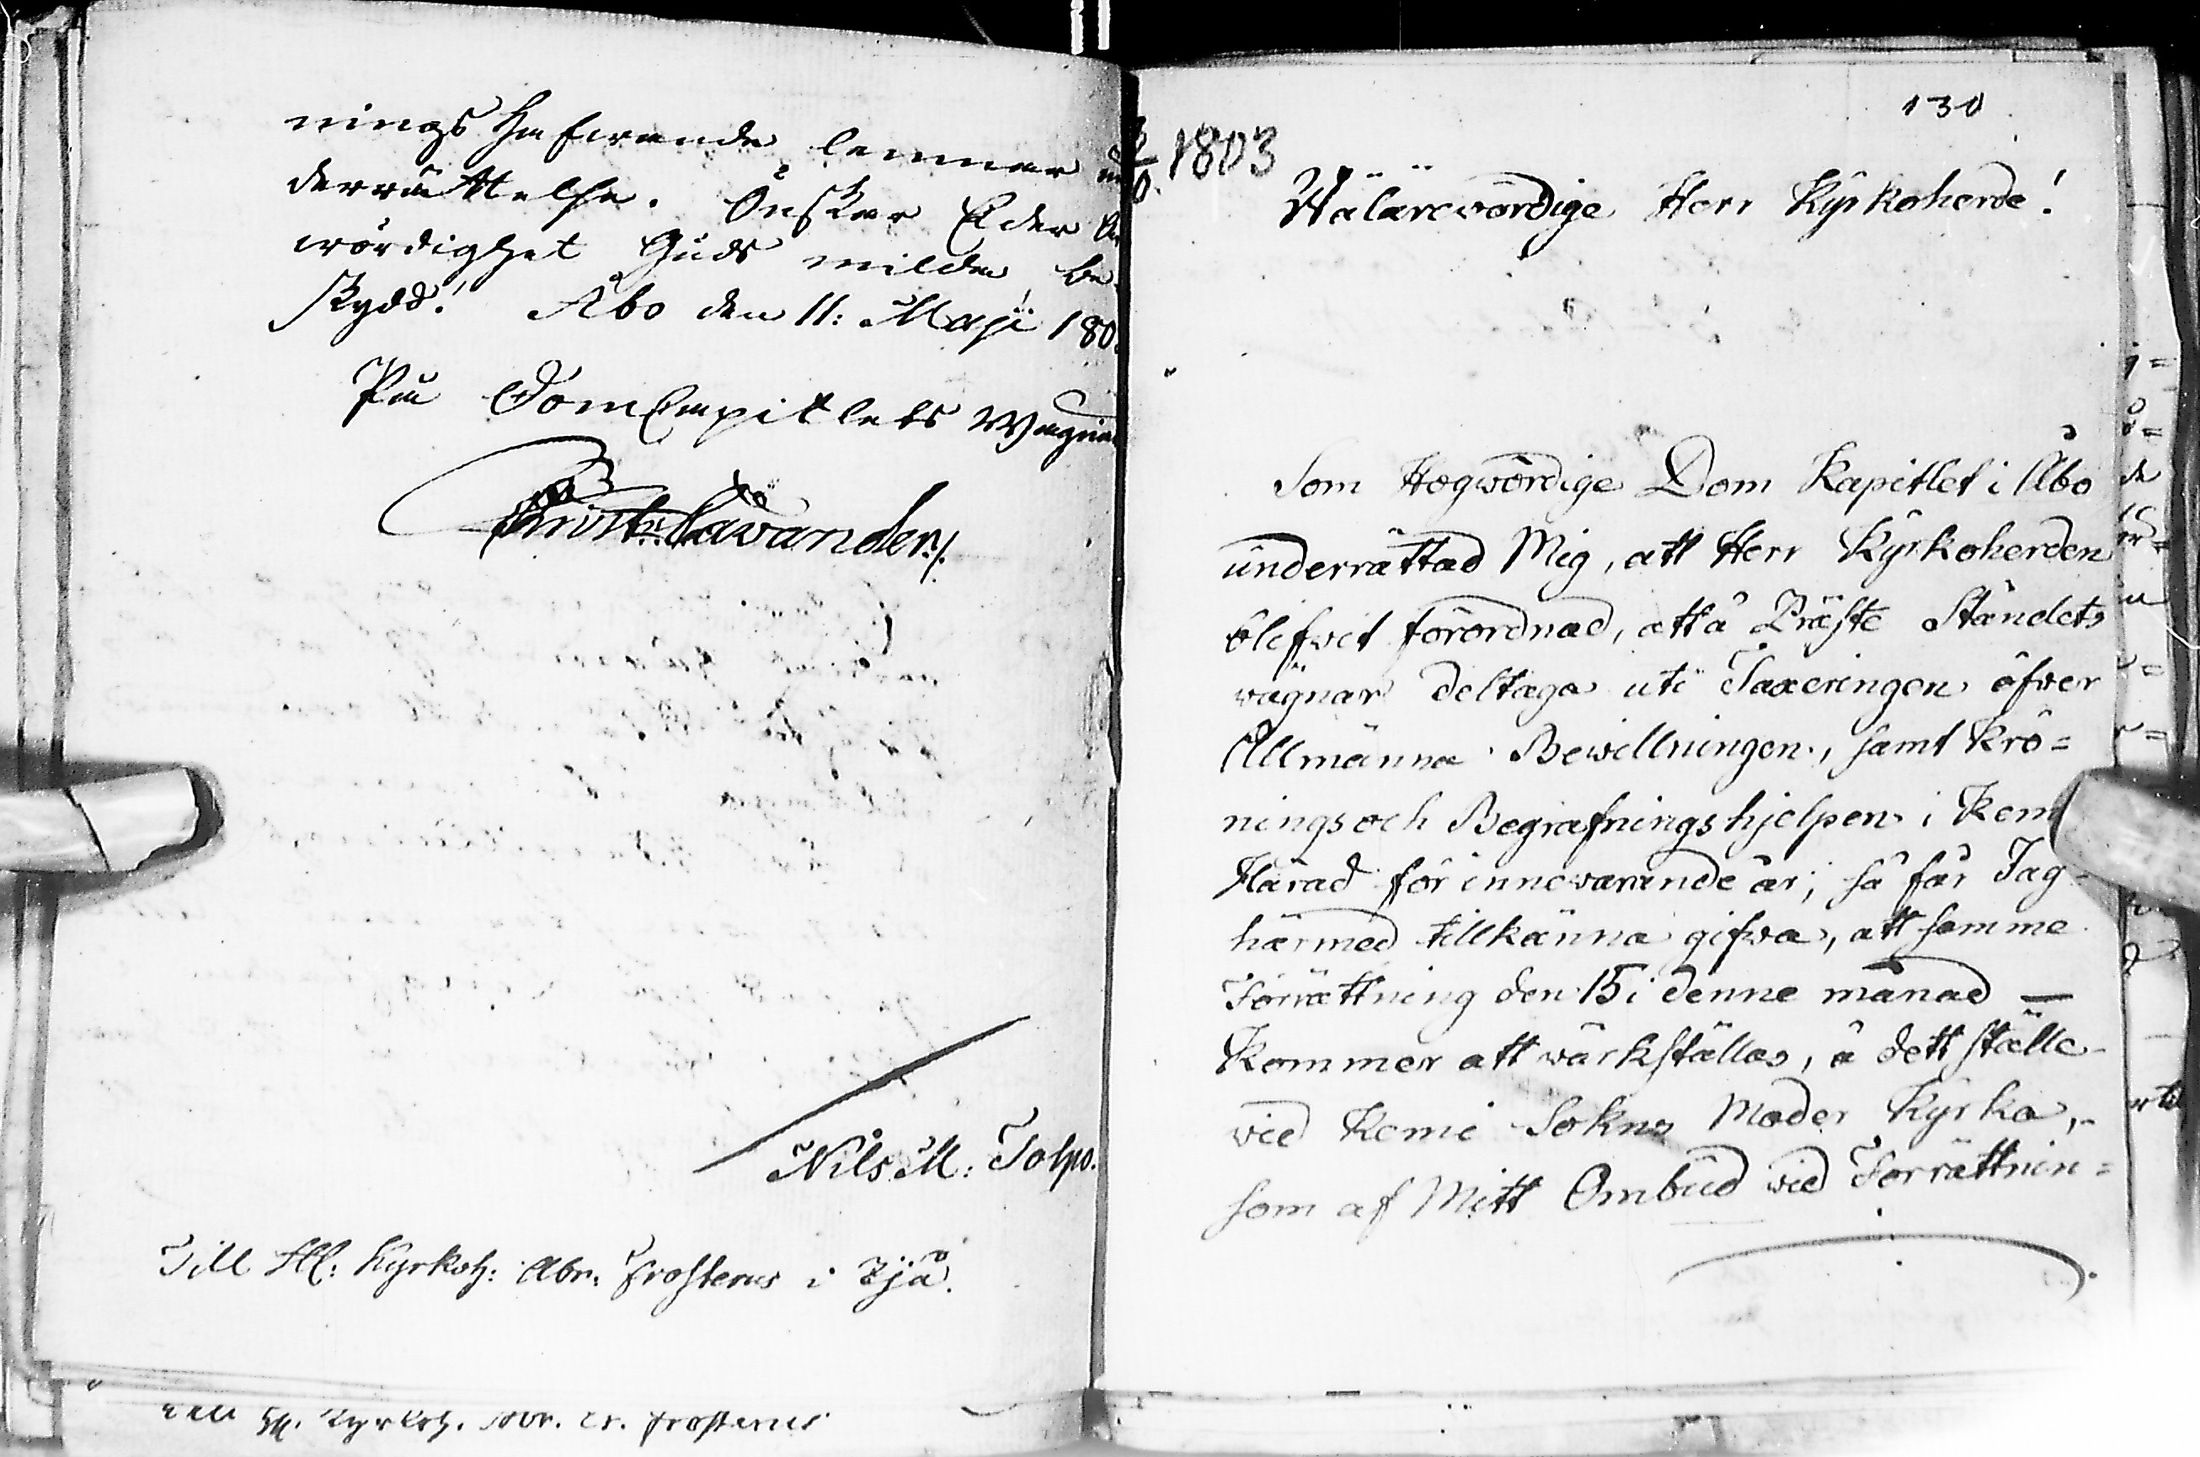 nings Hafwande lemnar un
derrättelse. Önskar Eder
wördighet Guds milda be-
skydd! Åbo den 11: Maji 180
På DomCapitlets Wägnar
Christ: Cavander:/.
Nils M: Tolpo.
Till HE: Kyrkoh: Abr: Frosterus i Ijå.
Kyrkoh. Frosterus
130
1803
Wälärewördige Herr Kyrkoherde!
Som Högwördige Dom Kapitlet i Åbo
underrättad Mig, att Herr Kyrkoherden
blifwit förordnad, att å Präste Ståndets
wägnar deltaga uti Taxeringen öfwer
Allmänna Bewillningen, samt Krö=
nings och Begrafningshjelpen i Kem
Härad för innewarande år; så får Jag
härmed tillkänna gifwa, att samme
Förrättning den 15 i denne månad —
Kommer att wärkställas, å dett ställe
wid Kemi Sokns Moder Kyrka,
som af Mitt Ombud wid Förrättnin=